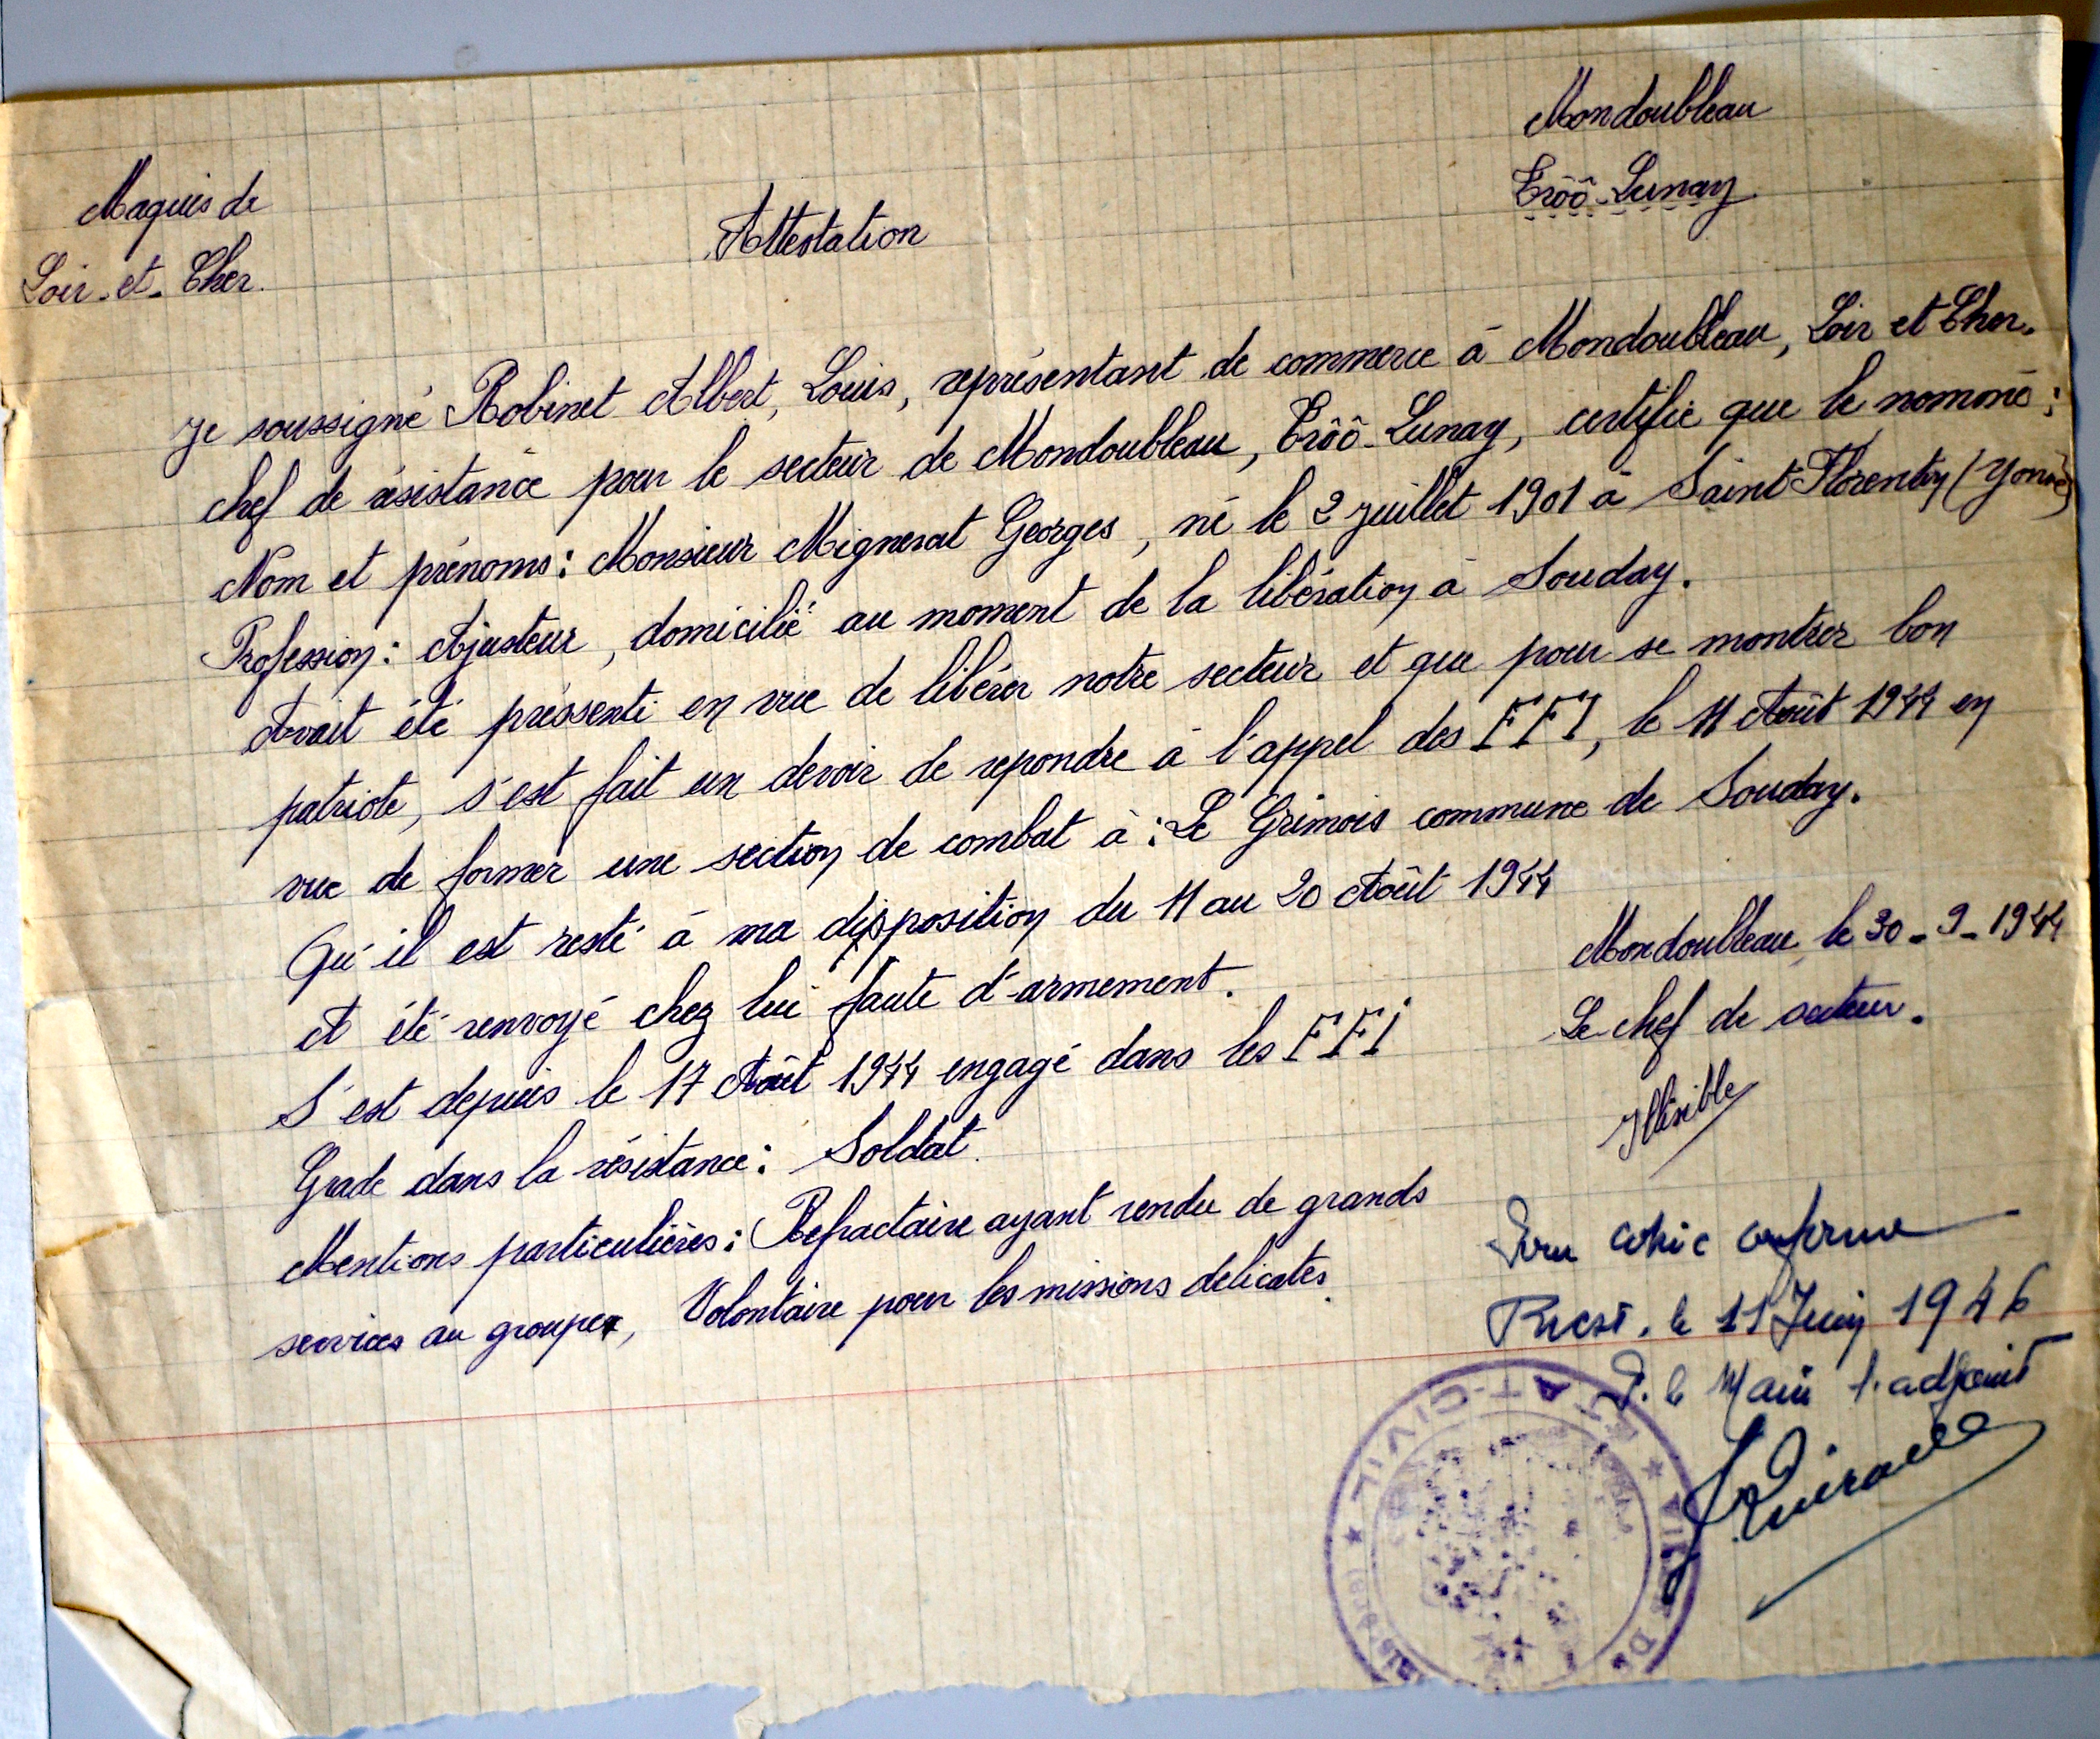 Mondoubleau
Trôô-Lunay
Maquis de
Loir-et-Cher.
Attestation
Je soussigné Robinet Albert, Louis, représentant de commerce à Mondoubleau, Loir et Cher.
chef de résistance pour le secteur de Mondoubleau, Trôô-Lunay, certifie que le nommé :
Nom et prénoms : Monsieur Mignerat Georges, né le 2 juillet 1901 à Saint-Florentin (Yonne)
Profession : Ajusteur, domicilié au moment de la libération à Souday.
Avait été préssenti en vue de libérer notre secteur et que pour se montrer bon
patriote, s'est fait un devoir de repondre à l'appel des FFI, le 11 Août 1944 en
vue de former une section de combat à : Le Grimois commune de Souday.
Qu'il est resté à ma disposition du 11 au 20 Août 1944
et été renvoyé chez lui faute d'armement.
S'est depuis le 17 Août 1944 engagé dans les FFI
Grade dans la résistance : Soldat.
Mentions particulières : Refractaire ayant rendu de grands
services au groupe, Volontaire pour les missions delicates.
Mondoubleau, le 30-9-1944
Le chef de secteur.
Illisible
Pour copie conforme
Brest, le 11 Juin 1946
P. le Maire l'adjoint
ÉTAT-CIVIL ★ VILLE DE